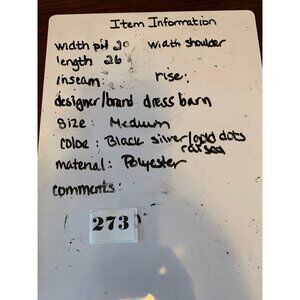 Item Information
width pit 20 width shoulder
length 26
inseam: rise:
designer/brand dress barn
size: Medium
coloe: Black silver/gold dots
raised
material: Polyester
comments:
273